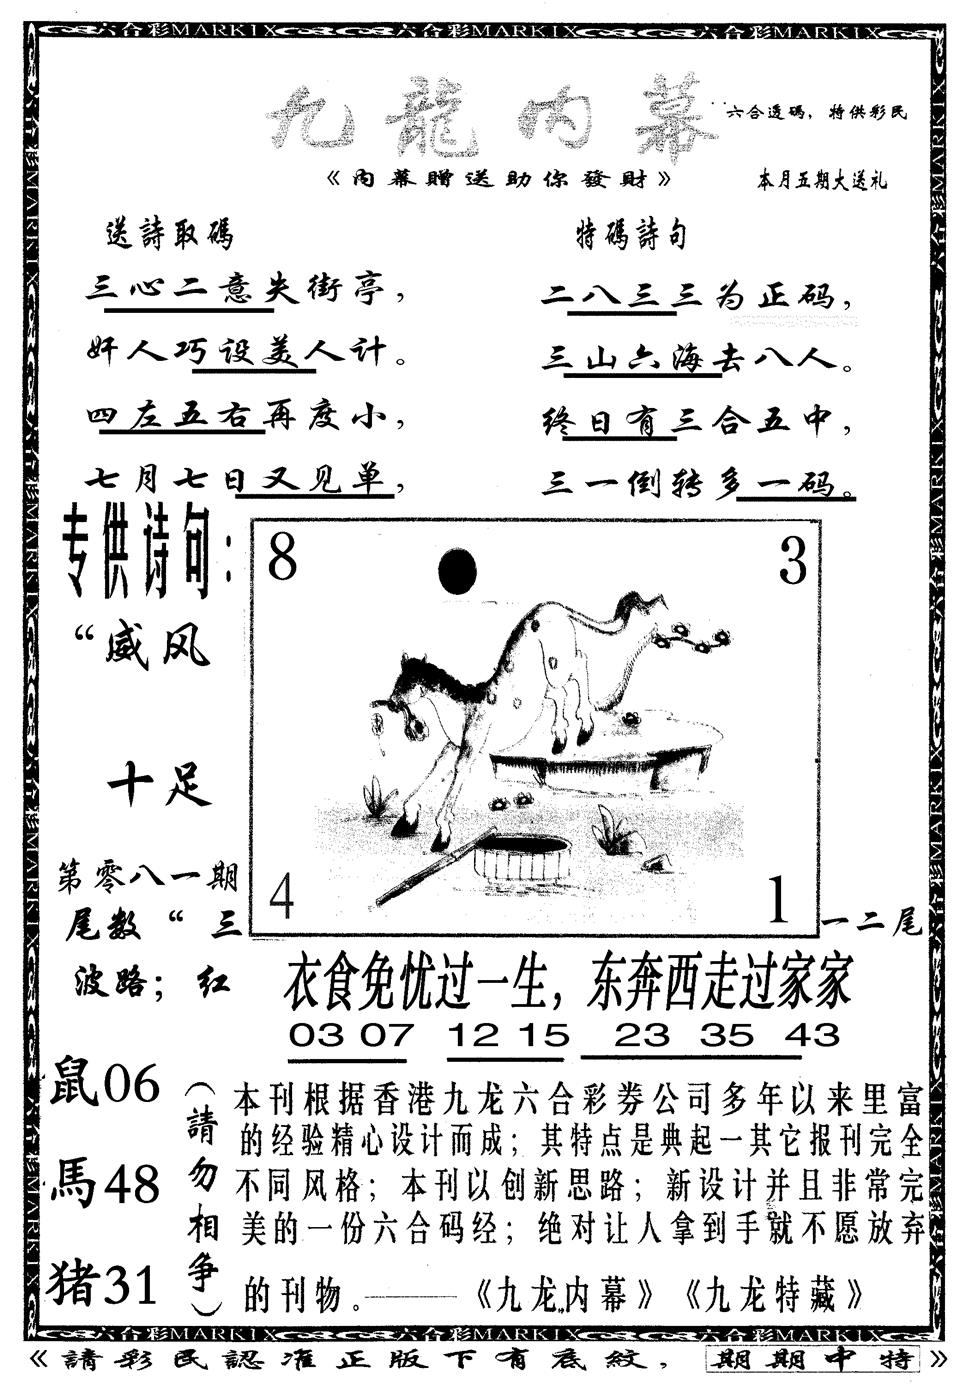 六合彩MARKIX 六合彩MARKIX 六合彩MARKIX
九龍内幕
六合透码，特供彩民
《内幕贈送助你發財》
本月五期大送礼
送詩取碼
三心二意失街亭，
奸人巧设美人计。
四左五右再度小，
七月七日又见单，
特碼詩句
二八三三为正码，
三山六海去八人。
终日有三合五中，
三一倒转多一码。
专供诗句：
“威风
十足
8
3
4
1
第零八一期
尾数“三
一二尾
波路；红
衣食免忧过一生，东奔西走过家家
03 07 12 15 23 35 43
鼠06
馬48
猪31
（請勿相争）
本刊根据香港九龙六合彩券公司多年以来里富
的经验精心设计而成；其特点是典起一其它报刊完全
不同风格；本刊以创新思路；新设计并且非常完
美的一份六合码经；绝对让人拿到手就不愿放弃
的刊物。———《九龙内幕》《九龙特藏》
六合彩MARKIX 六合彩MARKIX 六合彩MARKIX
《請彩民認准正版下有底紋，期期中特》